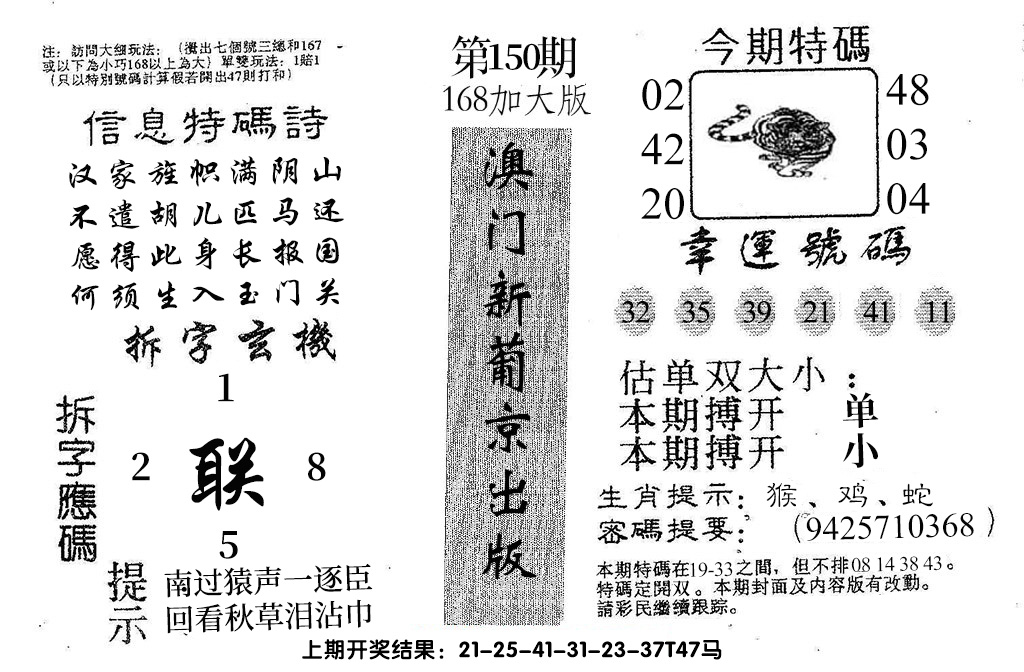 注：訪問大细玩法：（攪出七個號三總和167
或以下為小巧168以上為大）單雙玩法：1賠1
（只以特別號碼計算假若開出47則打和）
信息特碼詩
汉家旌帜满阴山
不遣胡儿匹马还
愿得此身长报国
何须生入玉门关
拆字玄機
1
2 联 8
5
拆字應碼
提示
南过猿声一逐臣
回看秋草泪沾巾
第150期
168加大版
澳门新葡京出版
今期特碼
02 48
42 03
20 04
幸運號碼
32 35 39 21 41 11
估单双大小：
本期搏开 单
本期搏开 小
生肖提示：猴、鸡、蛇
密碼提要：（9425710368）
本期特碼在19-33之間，但不排08 14 38 43。
特碼定開双。本期封面及内容版有改動。
請彩民繼續跟踪。
上期开奖结果：21-25-41-31-23-37T47马